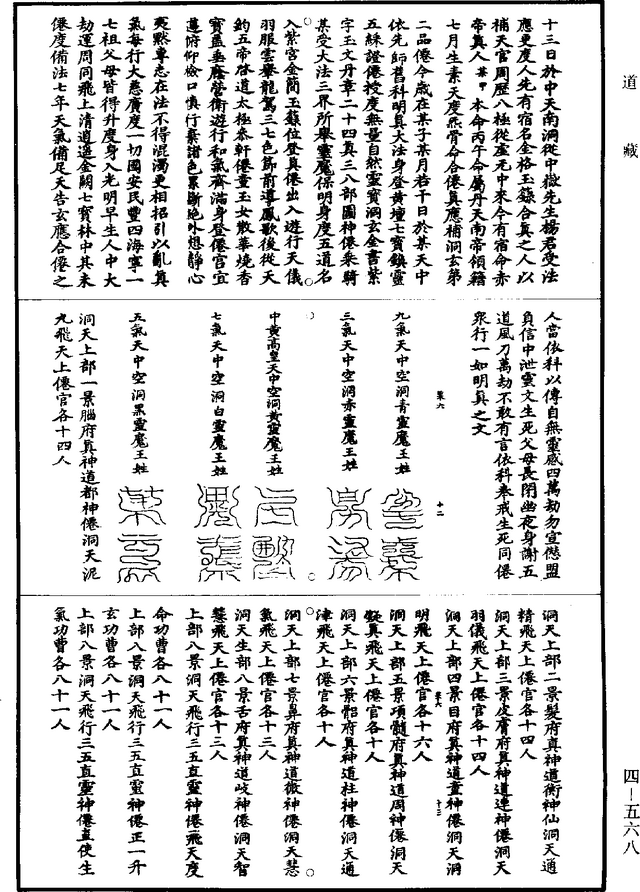 道藏
十三日於中天南洞從中嶽先生楊君受法
應更度人先有宿名金格玉籙合真之人以
補天官周歷八極從虛元中來今有宿命赤
帝真人某甲本命丙午命屬丹天南帝領籍
七月生素天度炁骨命合僊真應補洞玄第
二品僊今歲在某子某月若干日於某天中
依先師舊科明真大法身登黃壇七寶鎮靈
五綵證僊授度無量自然靈寶洞玄金書紫
字玉文丹章二十四真三八部圖神僊乘騎
某受大法三界所舉靈魔保明身度五道名
入紫宮金簡玉籙位登真僊出入遊行天儀
羽服雲轝龍駕三七色節前導鳳歌後從天
鈞五帝啓道太極叅軒僊童玉女散華燒香
寶蓋垂蔭營衛遊行和氣齊滿身登僊官宜
遵俯仰檢口慎行棄諸色累斷絕外想靜心
夷默專志在法不得混濁更相招引以亂真
氣每行大慈廣度一切國安民豐四海寧一
七祖父母皆得升度身入光明早生人中大
劫運周同飛上清逍遙金闕七寶林中其未
僊度備法七年天氣備足天告玄應合僊之
人當依科以傳自無靈感四萬劫勿宣愆盟
負信中泄靈文生死父母長閉幽夜身謝五
道風刀萬劫不敢有言依科奉戒生死同僊
衆行一如明真之文
九氣天中空洞青靈魔王姓
三氣天中空洞赤靈魔王姓
中黃高皇天中空洞黃靈魔王姓
七氣天中空洞白靈魔王姓
五氣天中空洞黑靈魔王姓
洞天上部一景腦府真神道都神僊洞天泥
九飛天上僊官各十四人
洞天上部二景髮府真神道衡神仙洞天通
精飛天上僊官各十四人
洞天上部三景皮膚府真神道連神僊洞天
羽儀飛天上僊官各十四人
洞天上部四景目府真神道童神僊洞天洞
明飛天上僊官各十六人
洞天上部五景項髓府真神道周神僊洞天
凝真飛天上僊官各十人
洞天上部六景膂府真神道柱神僊洞天通
津飛天上僊官各十人
洞天上部七景鼻府真神道微神僊洞天慧
氣飛天上僊官各十三人
洞天生部八景舌府真神道岐神僊洞天智
慧飛天上僊官各十三人
上部八景洞天飛行三五直靈神僊飛天度
命功曹各八十一人
上部八景洞天飛行三五直靈神僊正一升
玄功曹各八十一人
上部八景洞天飛行三五直靈神僊直使生
氣功曹各八十一人
四－五六八